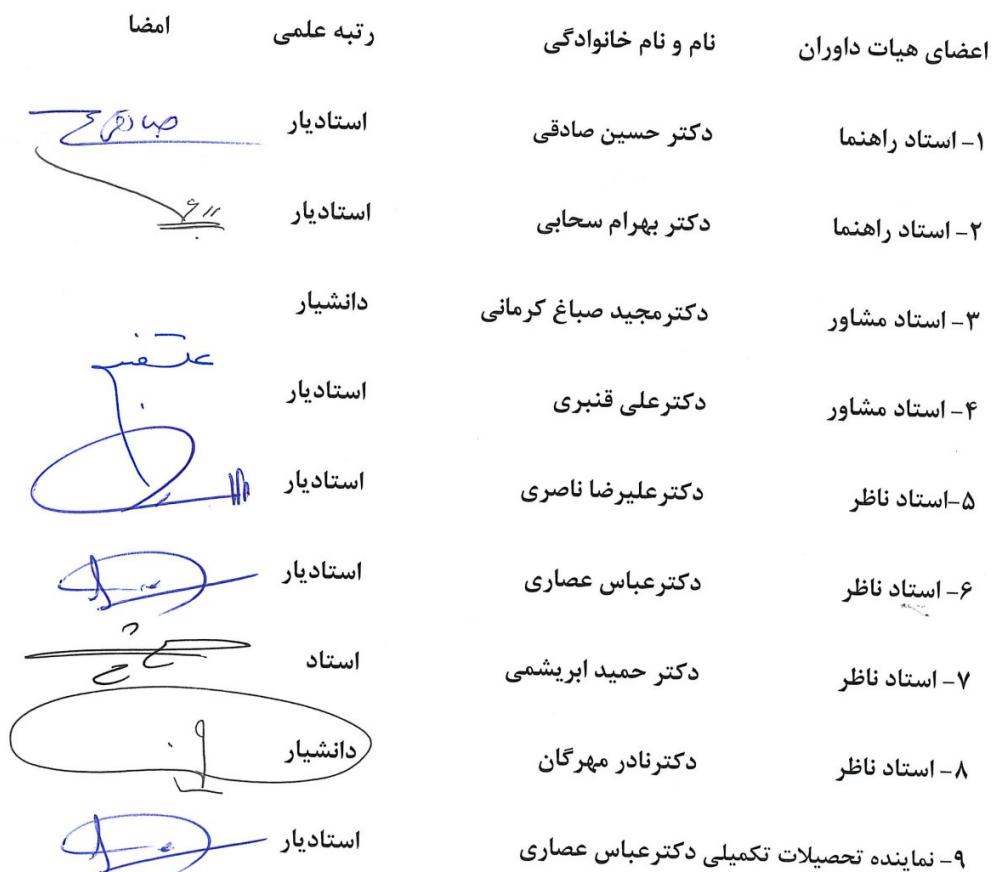 اعضای هیات داوران نام و نام خانوادگی رتبه علمی امضا
۱- استاد راهنما دکتر حسین صادقی استادیار
۲- استاد راهنما دکتر بهرام سحابی استادیار
۳- استاد مشاور دکترمجید صباغ کرمانی دانشیار
۴- استاد مشاور دکترعلی قنبری استادیار
۵-استاد ناظر دکترعلیرضا ناصری استادیار
۶- استاد ناظر دکترعباس عصاری استادیار
۷- استاد ناظر دکتر حمید ابریشمی استاد
۸- استاد ناظر دکترنادر مهرگان دانشیار
۹- نماینده تحصیلات تکمیلی دکترعباس عصاری استادیار